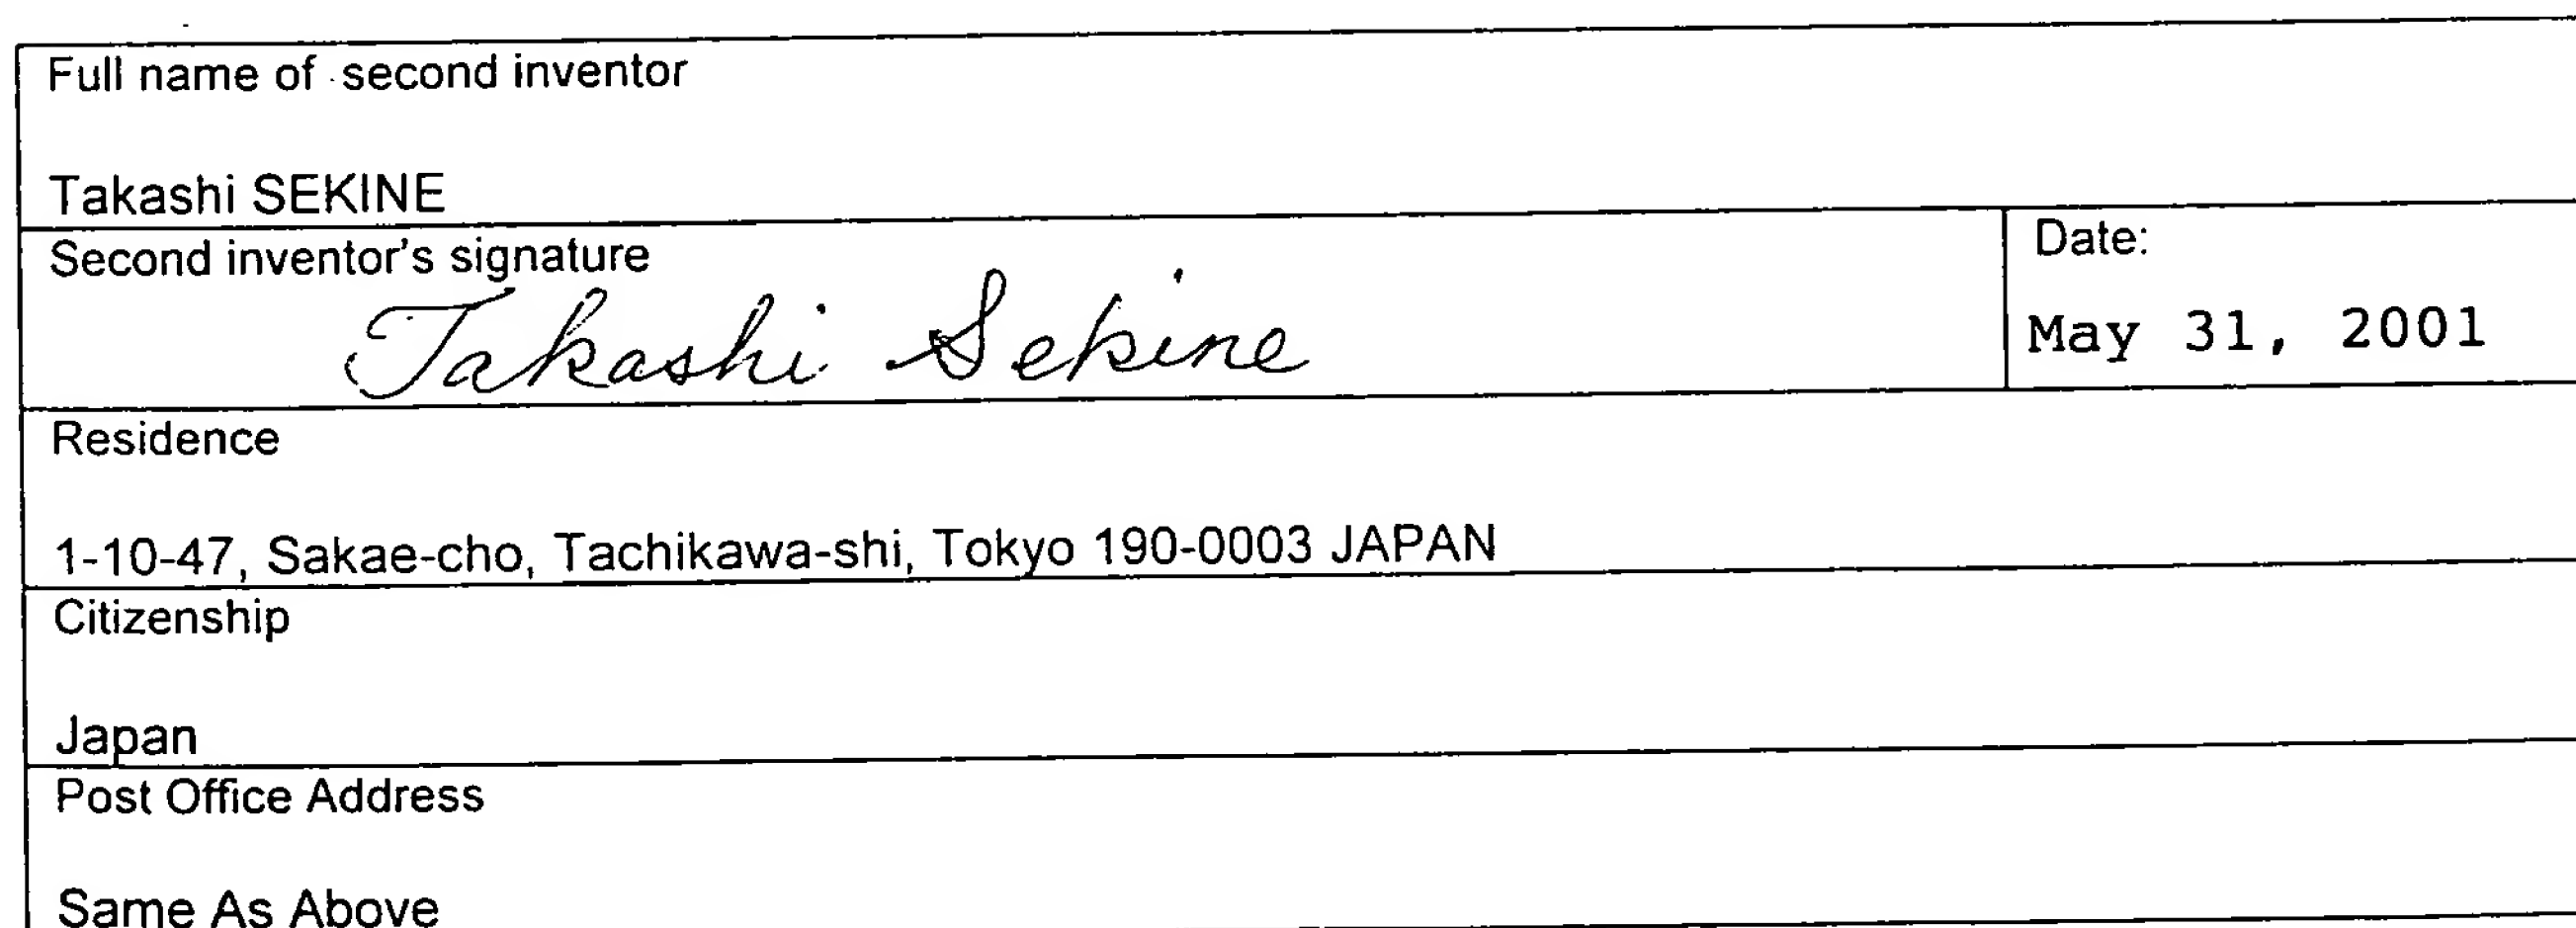 Full name of second inventor
Takashi SEKINE
Second inventor's signature
Takashi Sekine
Date:
May 31, 2001
Residence
1-10-47, Sakae-cho, Tachikawa-shi, Tokyo 190-0003 JAPAN
Citizenship
Japan
Post Office Address
Same As Above